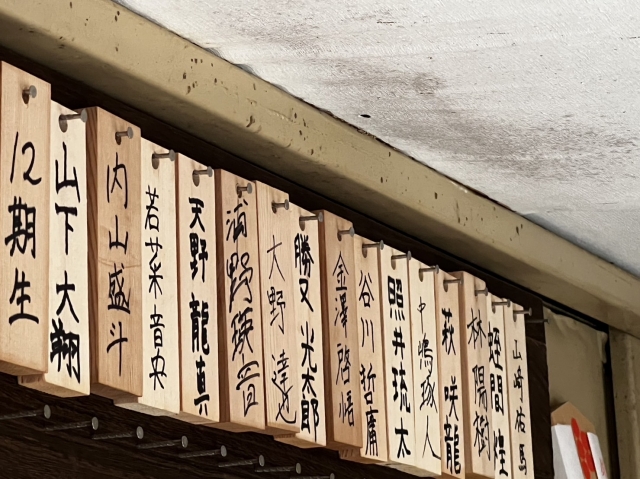 12期生
山下大翔
内山盛斗
若菜音央
天野龍真
浦野
大野達
勝又光太郎
金澤啓悟
谷川哲庸
照井琉太
中嶋琢人
萩咲龍
林陽樹
蛭間煌
山崎佑馬